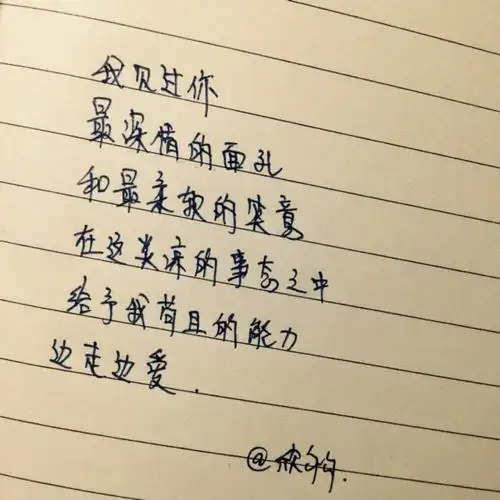 我见过你
最深情的面孔
和最柔软的笑意
在这炎凉的事态之中
给予我苟且的能力
边走边爱.